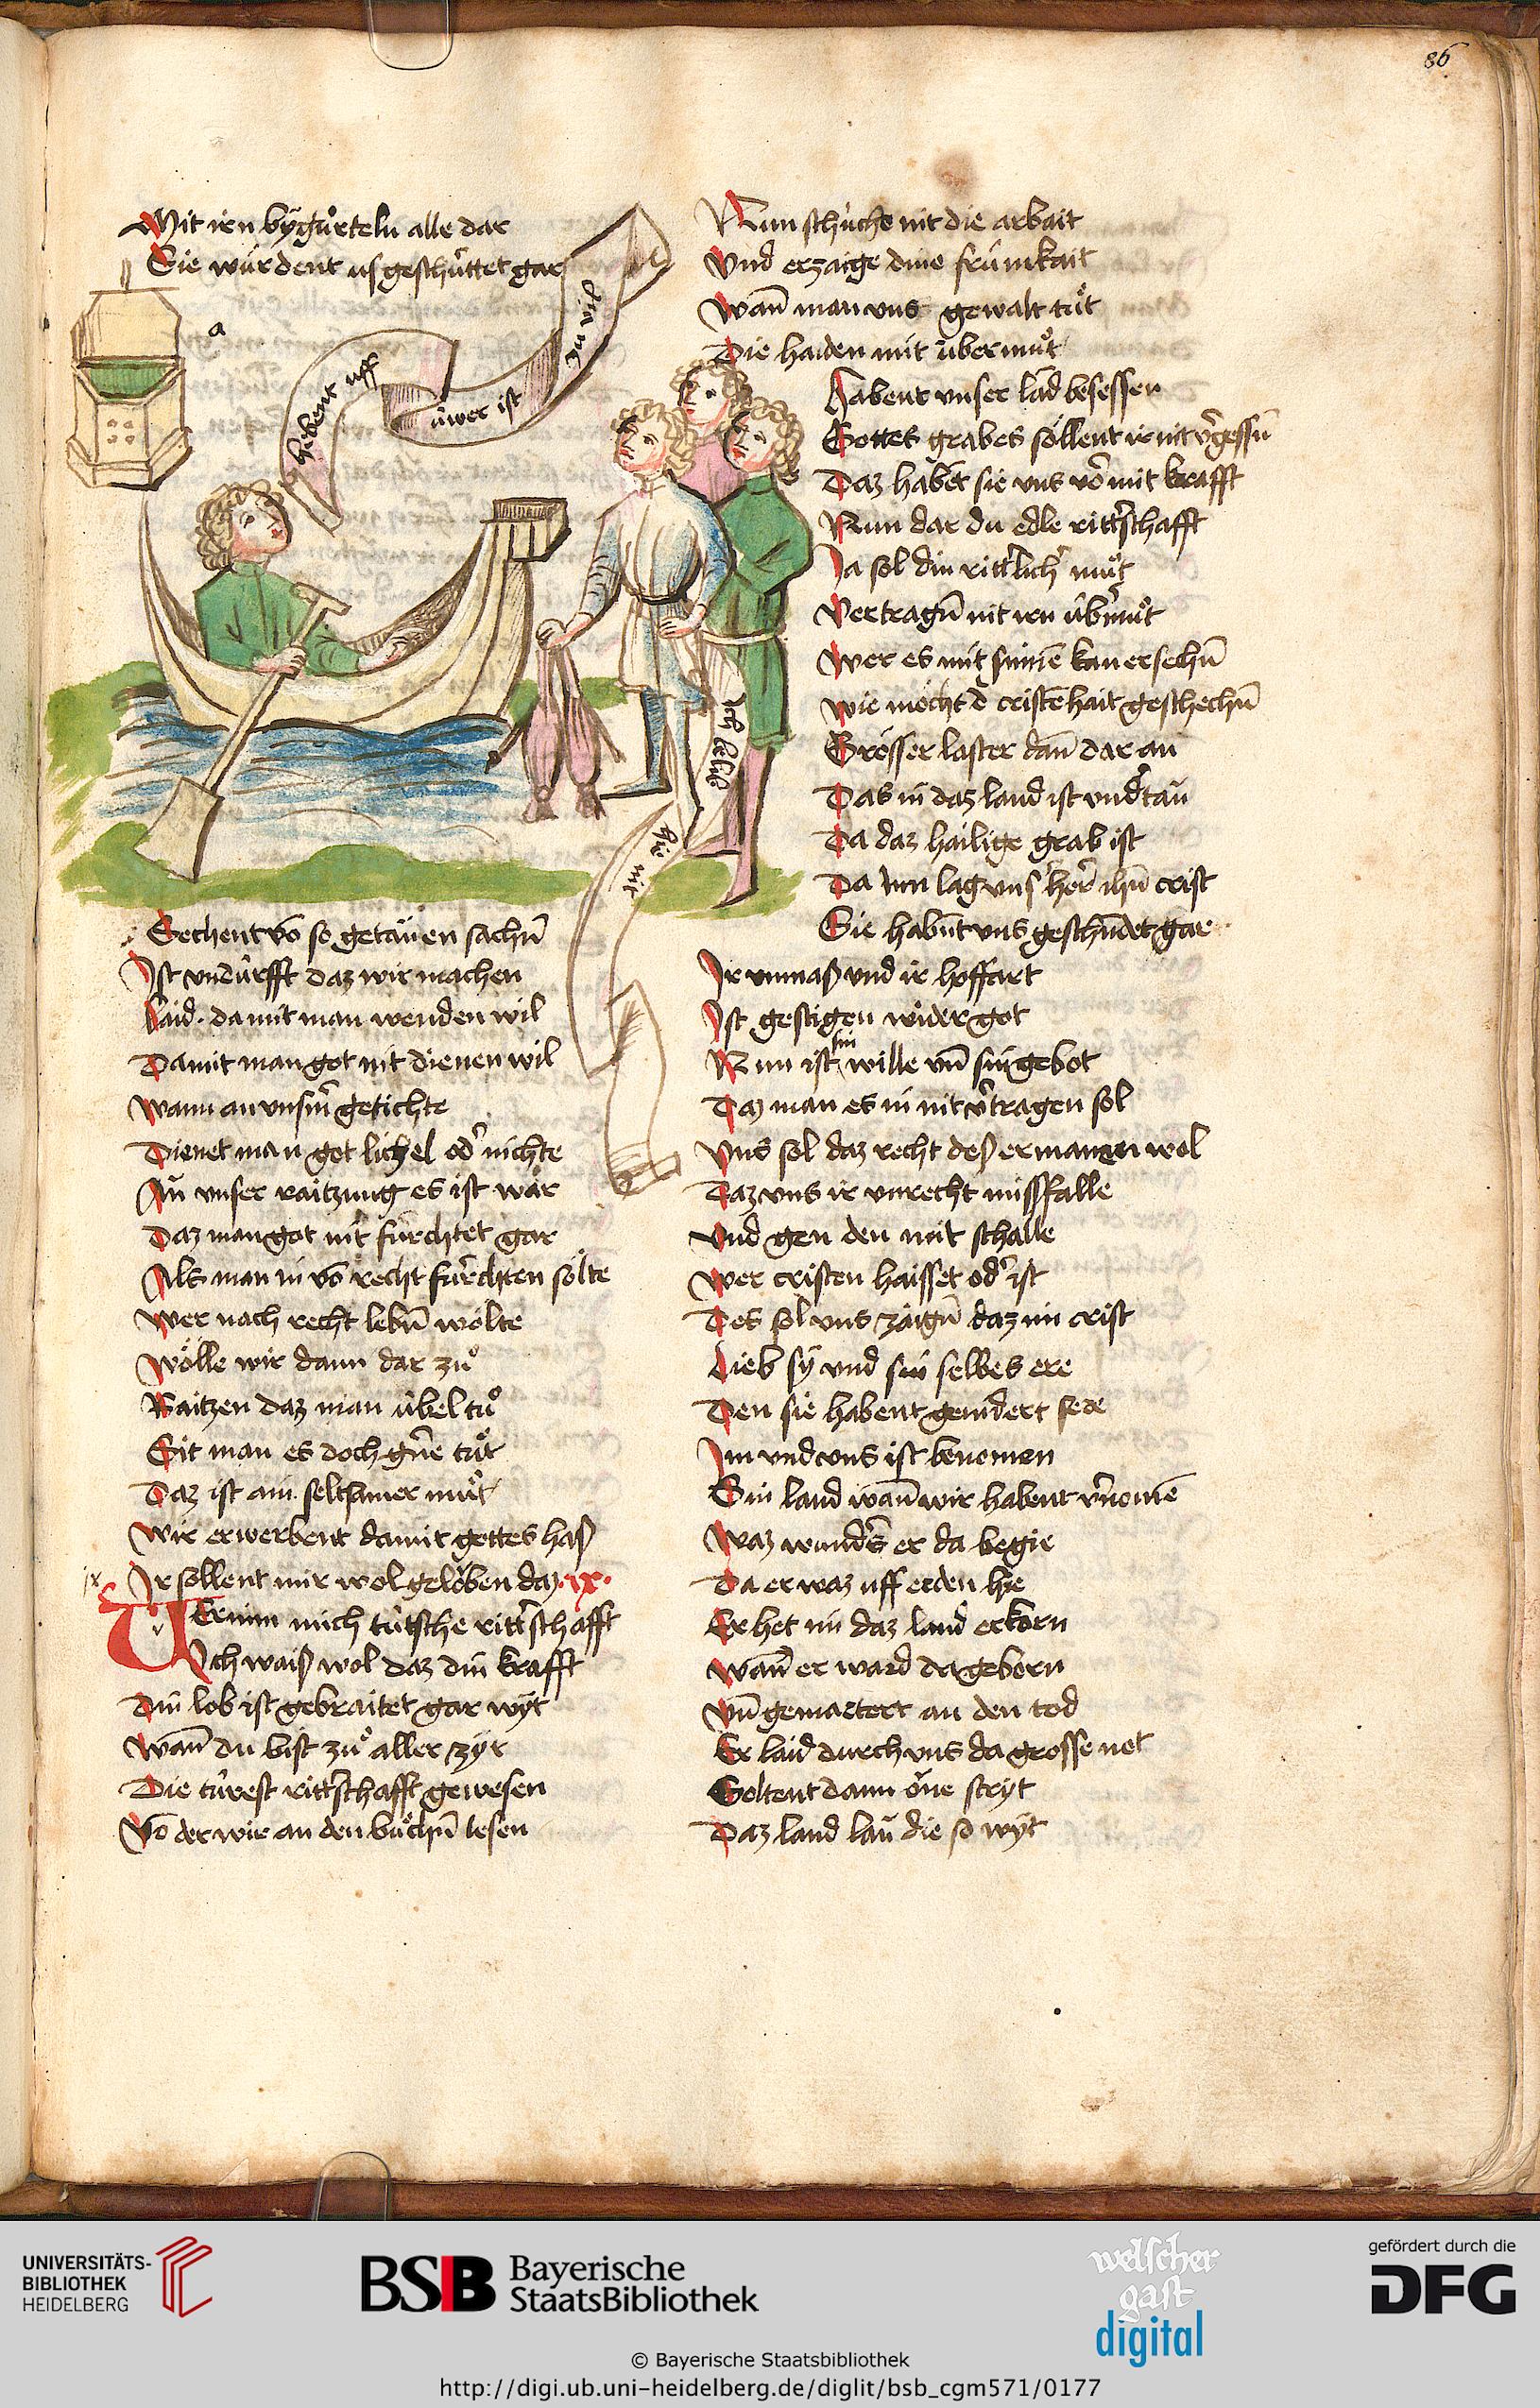 86
Mit irn bÿgůrteln alle dar
Sie wúrdent usgeschúttet gar
a
hebent uff
úwer ist
ich lasse
hie mit
Sechent võ so getäuen sachn̄
Ist undúrfft daz wir machen
Laid. damit man wenden wil
Damit man got nit dienen wil
Wann an unsn̄ getichte
Dienet man got lichel od̉ nichte
An unser raitzung es ist wär
Daz man got nit fúrchtet gar
Als man in võ recht fúrchten sölte
Wer nach recht lebn̄ wölte
Wölle wir dann dar zů
Raitzen daz man úbel tů
Sit man es doch gn̉e tůt
Daz ist ain seltsamer můt
Wir erwerbent damit gottes haß
Ir söllent mir wol gelöben daz .ix.
ix
Vernim mich tútsche ritt̉schafft
Ich waiß wol daz din krafft
Din lob ist gebraitet gar wÿt
Wañ du bist zů aller zÿt
Die túrest ritt̉schafft gewesen
Võ der wir an den bůchn̄ lesen
Nun schúche nit die arbait
Und erzaige dine frúmkait
Wañ man uns gewalt tůt
Die haiden mit úbermůt
Habent unser lãd besessen
Gottes grabes söllent ir nit v̉gessn̄
Daz habēt sie uns võ mit krafft
Nun dar du edle ritt̉schafft
Ja sol din ritt̉lich̉ můt
Vertragn̄ nit irn úb̉můt
Wer es mit sinnē kan ersechn̄
Wie möcht d̉ cristēhait geschechn̄
Grösser laster dañ dar an
Das in daz land ist und̉tän
Da daz hailige grab ist
Da inn lag uns̉ her̉ ihū crist
Sie habn̄t uns geschn̄det gar
Ir unmaß und ir hoffart
Ist gestigen wider got
Nun ist sin wille uñ sin gebot
Daz man es in nit v̉tragen sol
Uns sol daz recht deß ermanen wol
Daz uns ir unrecht missfalle
Und gen den mit schalle
Wer cristen haisset od̉ ist
Des sol uns zaign̄ daz im crist
Lieb sÿ und sin selbes ere
Den sie habent gemīdert sere
Im und uns ist benomen
Sin land wañ wir habent v̉nomē
Waz wund̉s er da begie
Da er waz uff erden hie
Er het im daz land erkorn
Wañ er ward da geborn
Uñ gemartert an den tod
Er laid durch uns da grosse not
Soltent dann öne strÿt
Daz land lan die so wÿt
UNIVERSITÄTS-
BIBLIOTHEK
HEIDELBERG
BSB Bayerische
StaatsBibliothek
welscher
gast
digital
gefördert durch die
DFG
© Bayerische Staatsbibliothek
http://digi.ub.uni-heidelberg.de/diglit/bsb_cgm571/0177